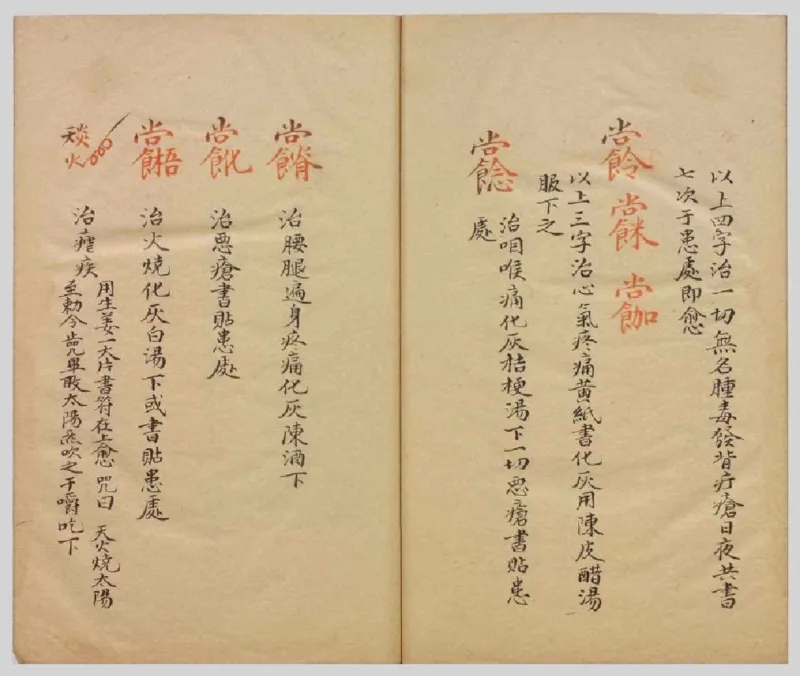 以上四字治一切無名腫毒發背疔瘡日夜共書
七次于患處即愈
以上三字治心氣疼痛黃紙書化灰用陳皮醋湯
服下之
治咽喉痛化灰桔梗湯下一切悪瘡書貼患
處
治腰腿遍身疼痛化灰陳酒下
治悪瘡書貼患處
治火燒化灰白湯下或書貼患處
治瘧疾
用生姜一大片書符在上愈咒曰 天火燒太陽
畢取太陽炁吹之于嚼吃下